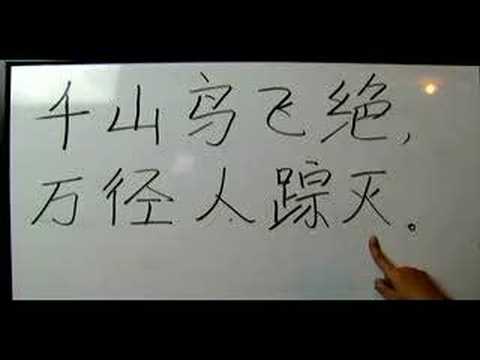 千山鸟飞绝,
万径人踪灭。